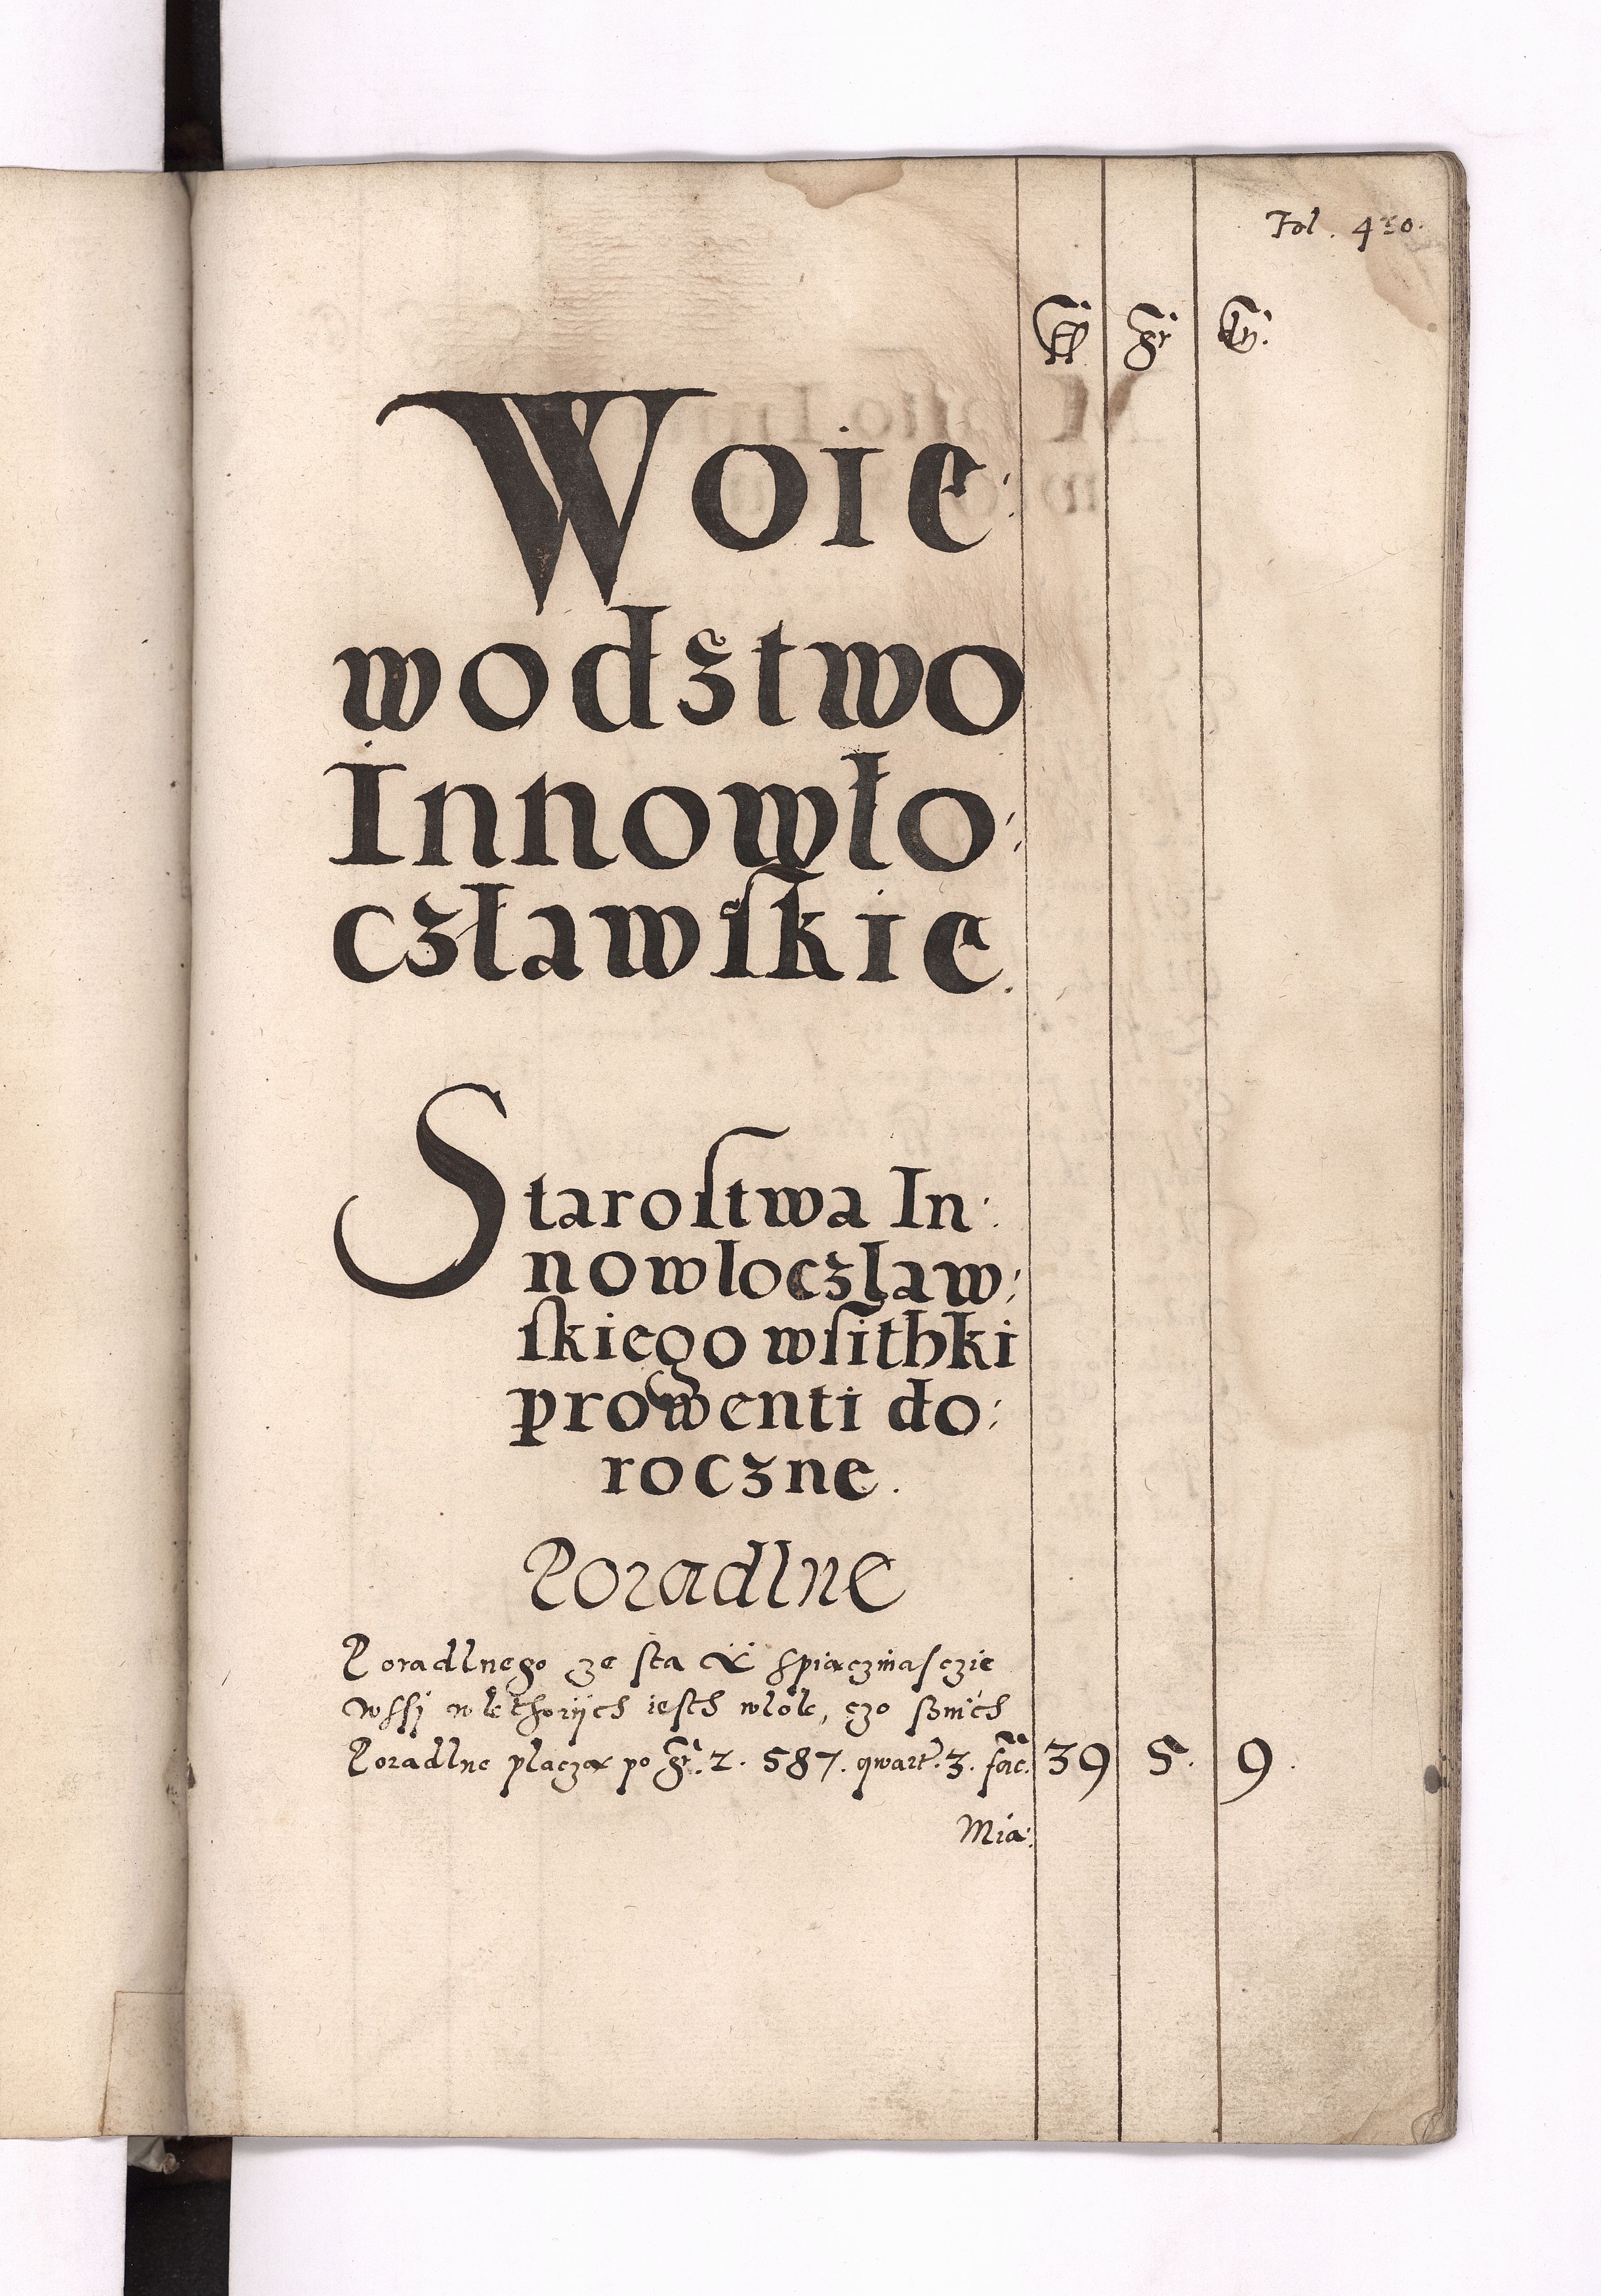 Fol. 410.
ff gr dn.
Woie:
wodstwo
Innowło:
czławſkie.
Staroſtwa In:
nowloczlaw:
ſkiego wſithki
prowenti do:
roczne.
Poradlne
Poradlnego ze ſta X ſpiączinaſczie
Wſſÿ w kthorÿch ieſth wlok, czo ſznich
Poradlne placzą po gr. 2. 587. qwart. 3. fac.
39 5. 9.
Mia: